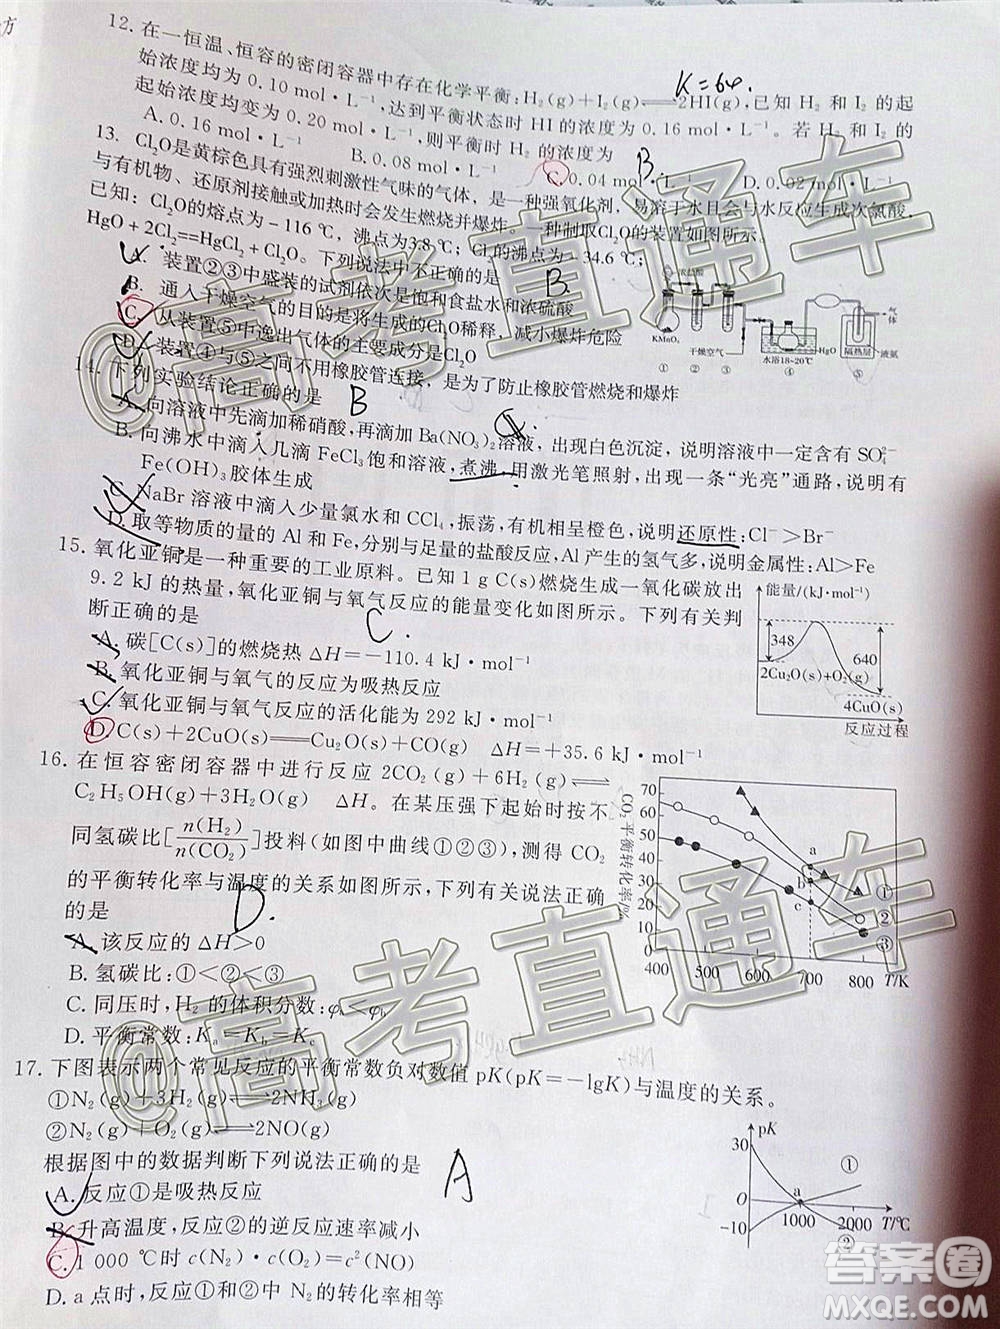 12. 在一恒温、恒容的密闭容器中存在化学平衡:H₂(g)+I₂(g)⇌2HI(g),已知 H₂ 和 I₂ 的起
K=64.
始浓度均为 0.10 mol·L⁻¹,达到平衡状态时 HI 的浓度为 0.16 mol·L⁻¹。若 H₂ 和 I₂ 的
起始浓度均变为 0.20 mol·L⁻¹,则平衡时 H₂ 的浓度为
A. 0.16 mol·L⁻¹ B. 0.08 mol·L⁻¹ C. 0.04 mol·L⁻¹ D. 0.02 mol·L⁻¹
B
13. Cl₂O是黄棕色具有强烈刺激性气味的气体,是一种强氧化剂,易溶于水且会与水反应生成次氯酸,
与有机物、还原剂接触或加热时会发生燃烧并爆炸。一种制取Cl₂O的装置如图所示。
已知:Cl₂O的熔点为-116℃,沸点为3.8℃;Cl₂的沸点为-34.6℃;
HgO+2Cl₂==HgCl₂+Cl₂O。下列说法中不正确的是
B.
A. 装置②③中盛装的试剂依次是饱和食盐水和浓硫酸
B. 通入干燥空气的目的是将生成的Cl₂O稀释,减小爆炸危险
C. 从装置⑤中逸出气体的主要成分是Cl₂O
D. 装置④与⑤之间不用橡胶管连接,是为了防止橡胶管燃烧和爆炸
浓盐酸
KMnO₄
干燥空气
水浴18~20℃
HgO
隔热层
液氨
气体
① ② ③ ④ ⑤
14. 下列实验结论正确的是
B
A. 向溶液中先滴加稀硝酸,再滴加 Ba(NO₃)₂溶液,出现白色沉淀,说明溶液中一定含有 SO₄²⁻
B. 向沸水中滴入几滴 FeCl₃ 饱和溶液,煮沸,用激光笔照射,出现一条“光亮”通路,说明有
Fe(OH)₃ 胶体生成
C. NaBr 溶液中滴入少量氯水和 CCl₄,振荡,有机相呈橙色,说明还原性:Cl⁻>Br⁻
D. 取等物质的量的 Al 和 Fe,分别与足量的盐酸反应,Al 产生的氢气多,说明金属性:Al>Fe
15. 氧化亚铜是一种重要的工业原料。已知 1 g C(s)燃烧生成一氧化碳放出
9.2 kJ 的热量,氧化亚铜与氧气反应的能量变化如图所示。下列有关判
断正确的是
C.
A. 碳[C(s)]的燃烧热 ΔH=-110.4 kJ·mol⁻¹
B. 氧化亚铜与氧气的反应为吸热反应
C. 氧化亚铜与氧气反应的活化能为 292 kJ·mol⁻¹
D. C(s)+2CuO(s)══Cu₂O(s)+CO(g) ΔH=+35.6 kJ·mol⁻¹
能量/(kJ·mol⁻¹)
348
640
2Cu₂O(s)+O₂(g)
4CuO(s)
反应过程
16. 在恒容密闭容器中进行反应 2CO₂(g)+6H₂(g)⇌
C₂H₅OH(g)+3H₂O(g) ΔH。在某压强下起始时按不
同氢碳比[n(H₂)/n(CO₂)]投料(如图中曲线①②③),测得 CO₂
的平衡转化率与温度的关系如图所示,下列有关说法正确
的是
D.
A. 该反应的 ΔH>0
B. 氢碳比:①<②<③
C. 同压时,H₂ 的体积分数:φₐ<φ_b
D. 平衡常数:Kₐ=K_b=K_c
CO₂平衡转化率/%
70
60
50
40
30
20
10
0
400 500 600 700 800 T/K
a
b
c
①
②
③
17. 下图表示两个常见反应的平衡常数负对数值 pK(pK=-lgK)与温度的关系。
①N₂(g)+3H₂(g)⇌2NH₃(g)
②N₂(g)+O₂(g)⇌2NO(g)
根据图中的数据判断下列说法正确的是
A
A. 反应①是吸热反应
B. 升高温度,反应②的逆反应速率减小
C. 1 000 ℃时 c(N₂)·c(O₂)=c²(NO)
D. a 点时,反应①和②中 N₂ 的转化率相等
pK
30
0
-10
a
1000 2000 T/℃
①
②
@高考直通车
@高考直通车
答案圈
MXQE.COM